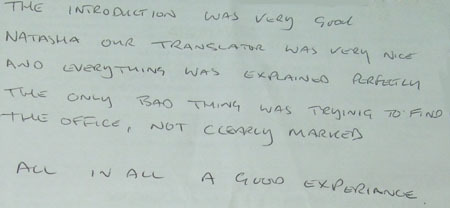 THE INTRODUCTION WAS VERY GOOD
NATASHA OUR TRANSLATOR WAS VERY NICE
AND EVERYTHING WAS EXPLAINED PERFECTLY
THE ONLY BAD THING WAS TRYING TO FIND
THE OFFICE, NOT CLEARLY MARKED
ALL IN ALL A GOOD EXPERIANCE.